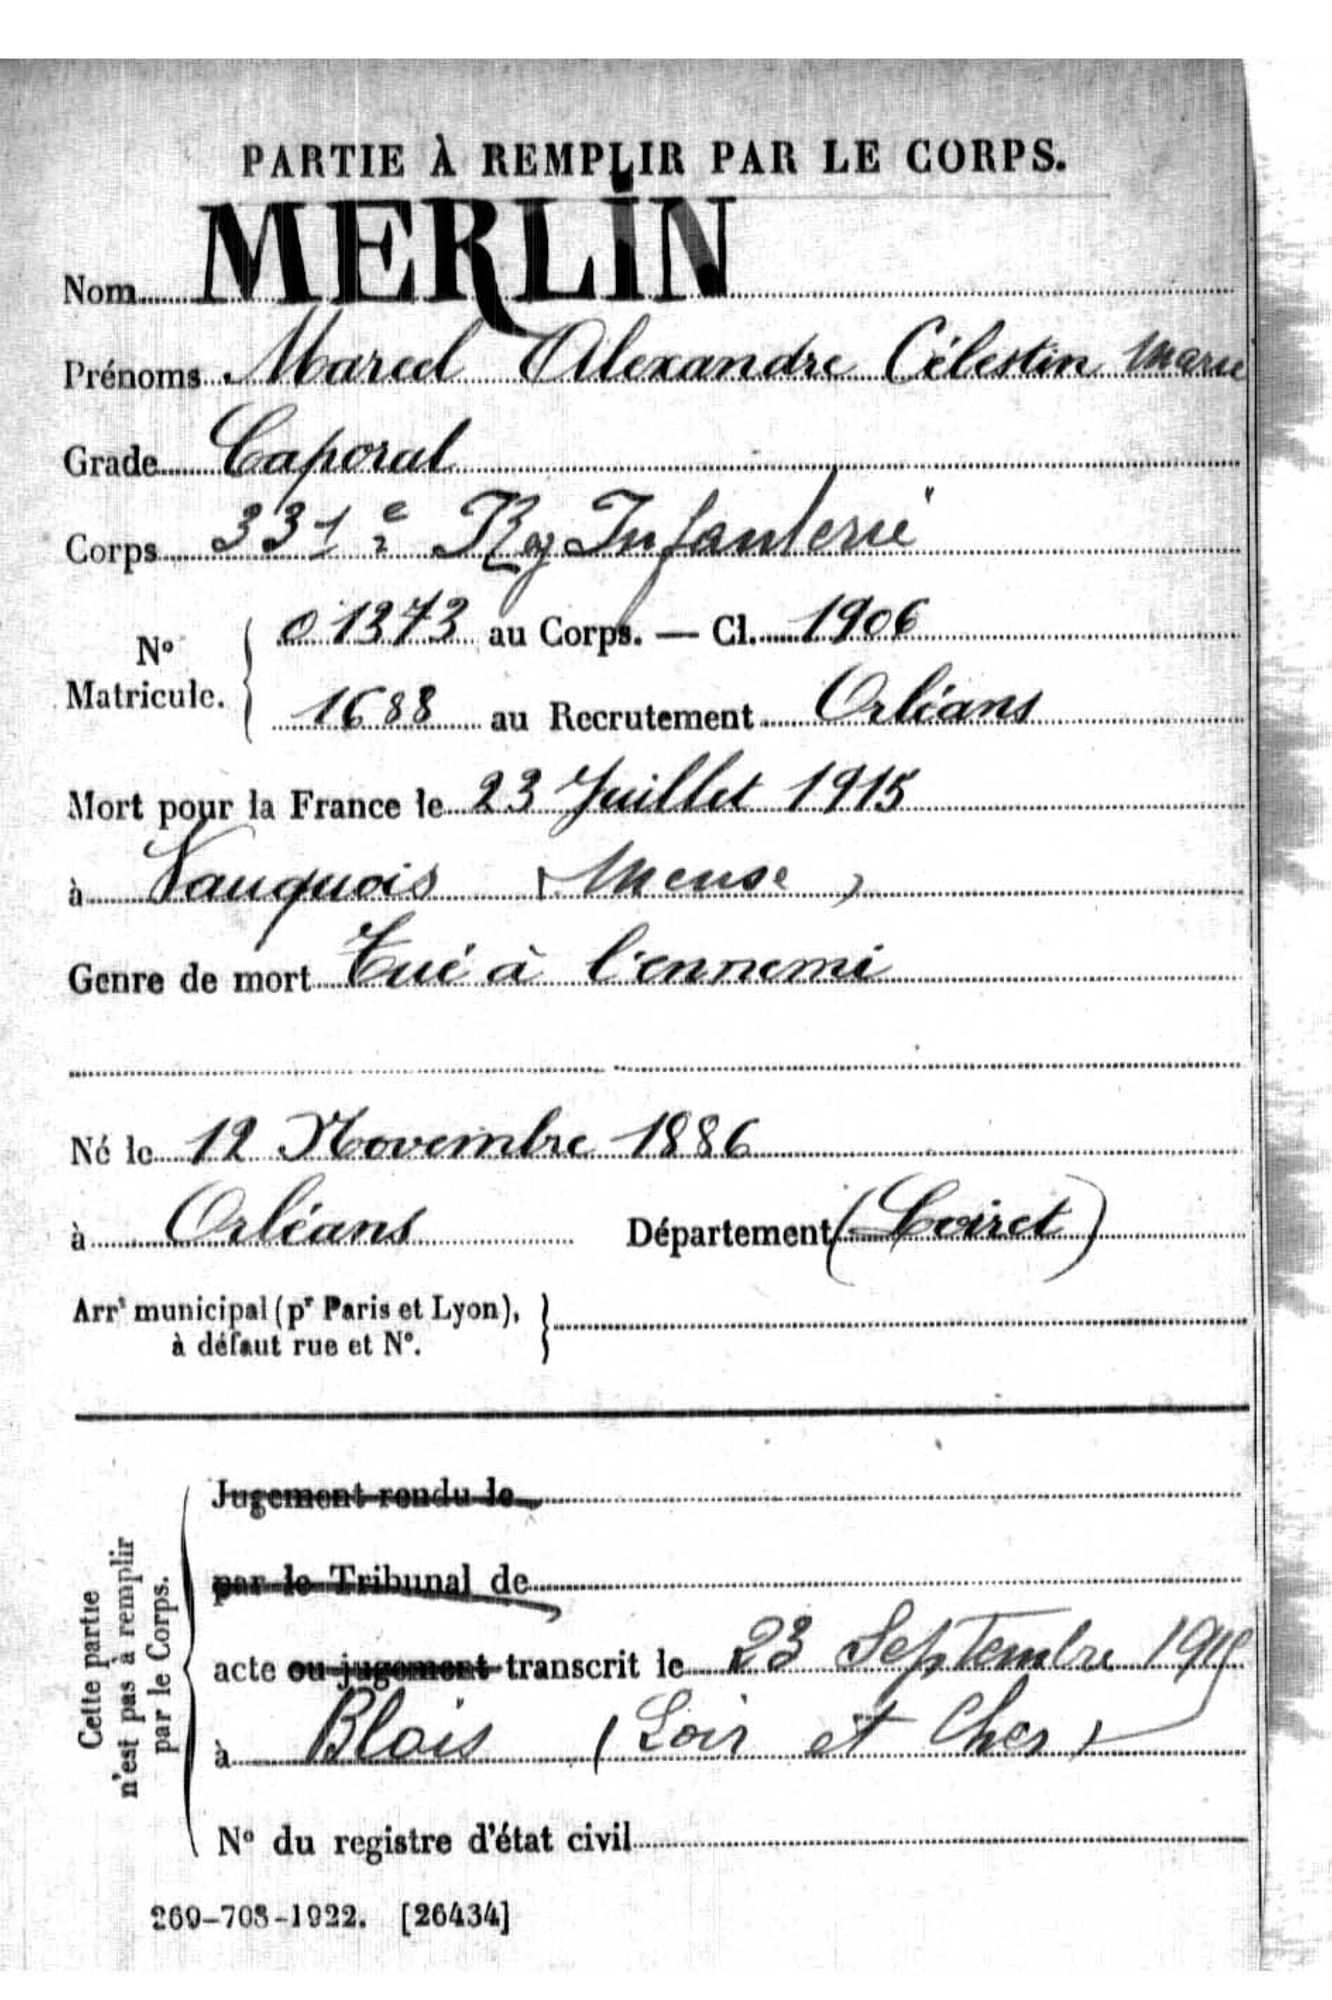 PARTIE À REMPLIR PAR LE CORPS.
Nom MERLIN
Prénoms Marcel Alexandre Célestin Marie
Grade Caporal
Corps 331e Rg Infanterie
No Matricule. { 01373 au Corps. — Cl. 1906
1688 au Recrutement Orléans
Mort pour la France le 23 Juillet 1915
à Vauquois (Meuse)
Genre de mort Tué à l'ennemi
Né le 12 Novembre 1886
à Orléans Département (Loiret)
Arrt municipal (pr Paris et Lyon), }
à défaut rue et No.
Cette partie
n'est pas à remplir
par le Corps.
Jugement rendu le
par le Tribunal de
acte ou jugement transcrit le 23 Septembre 1915
à Blois (Loir et Cher)
No du registre d'état civil
269-708-1922. [26434]